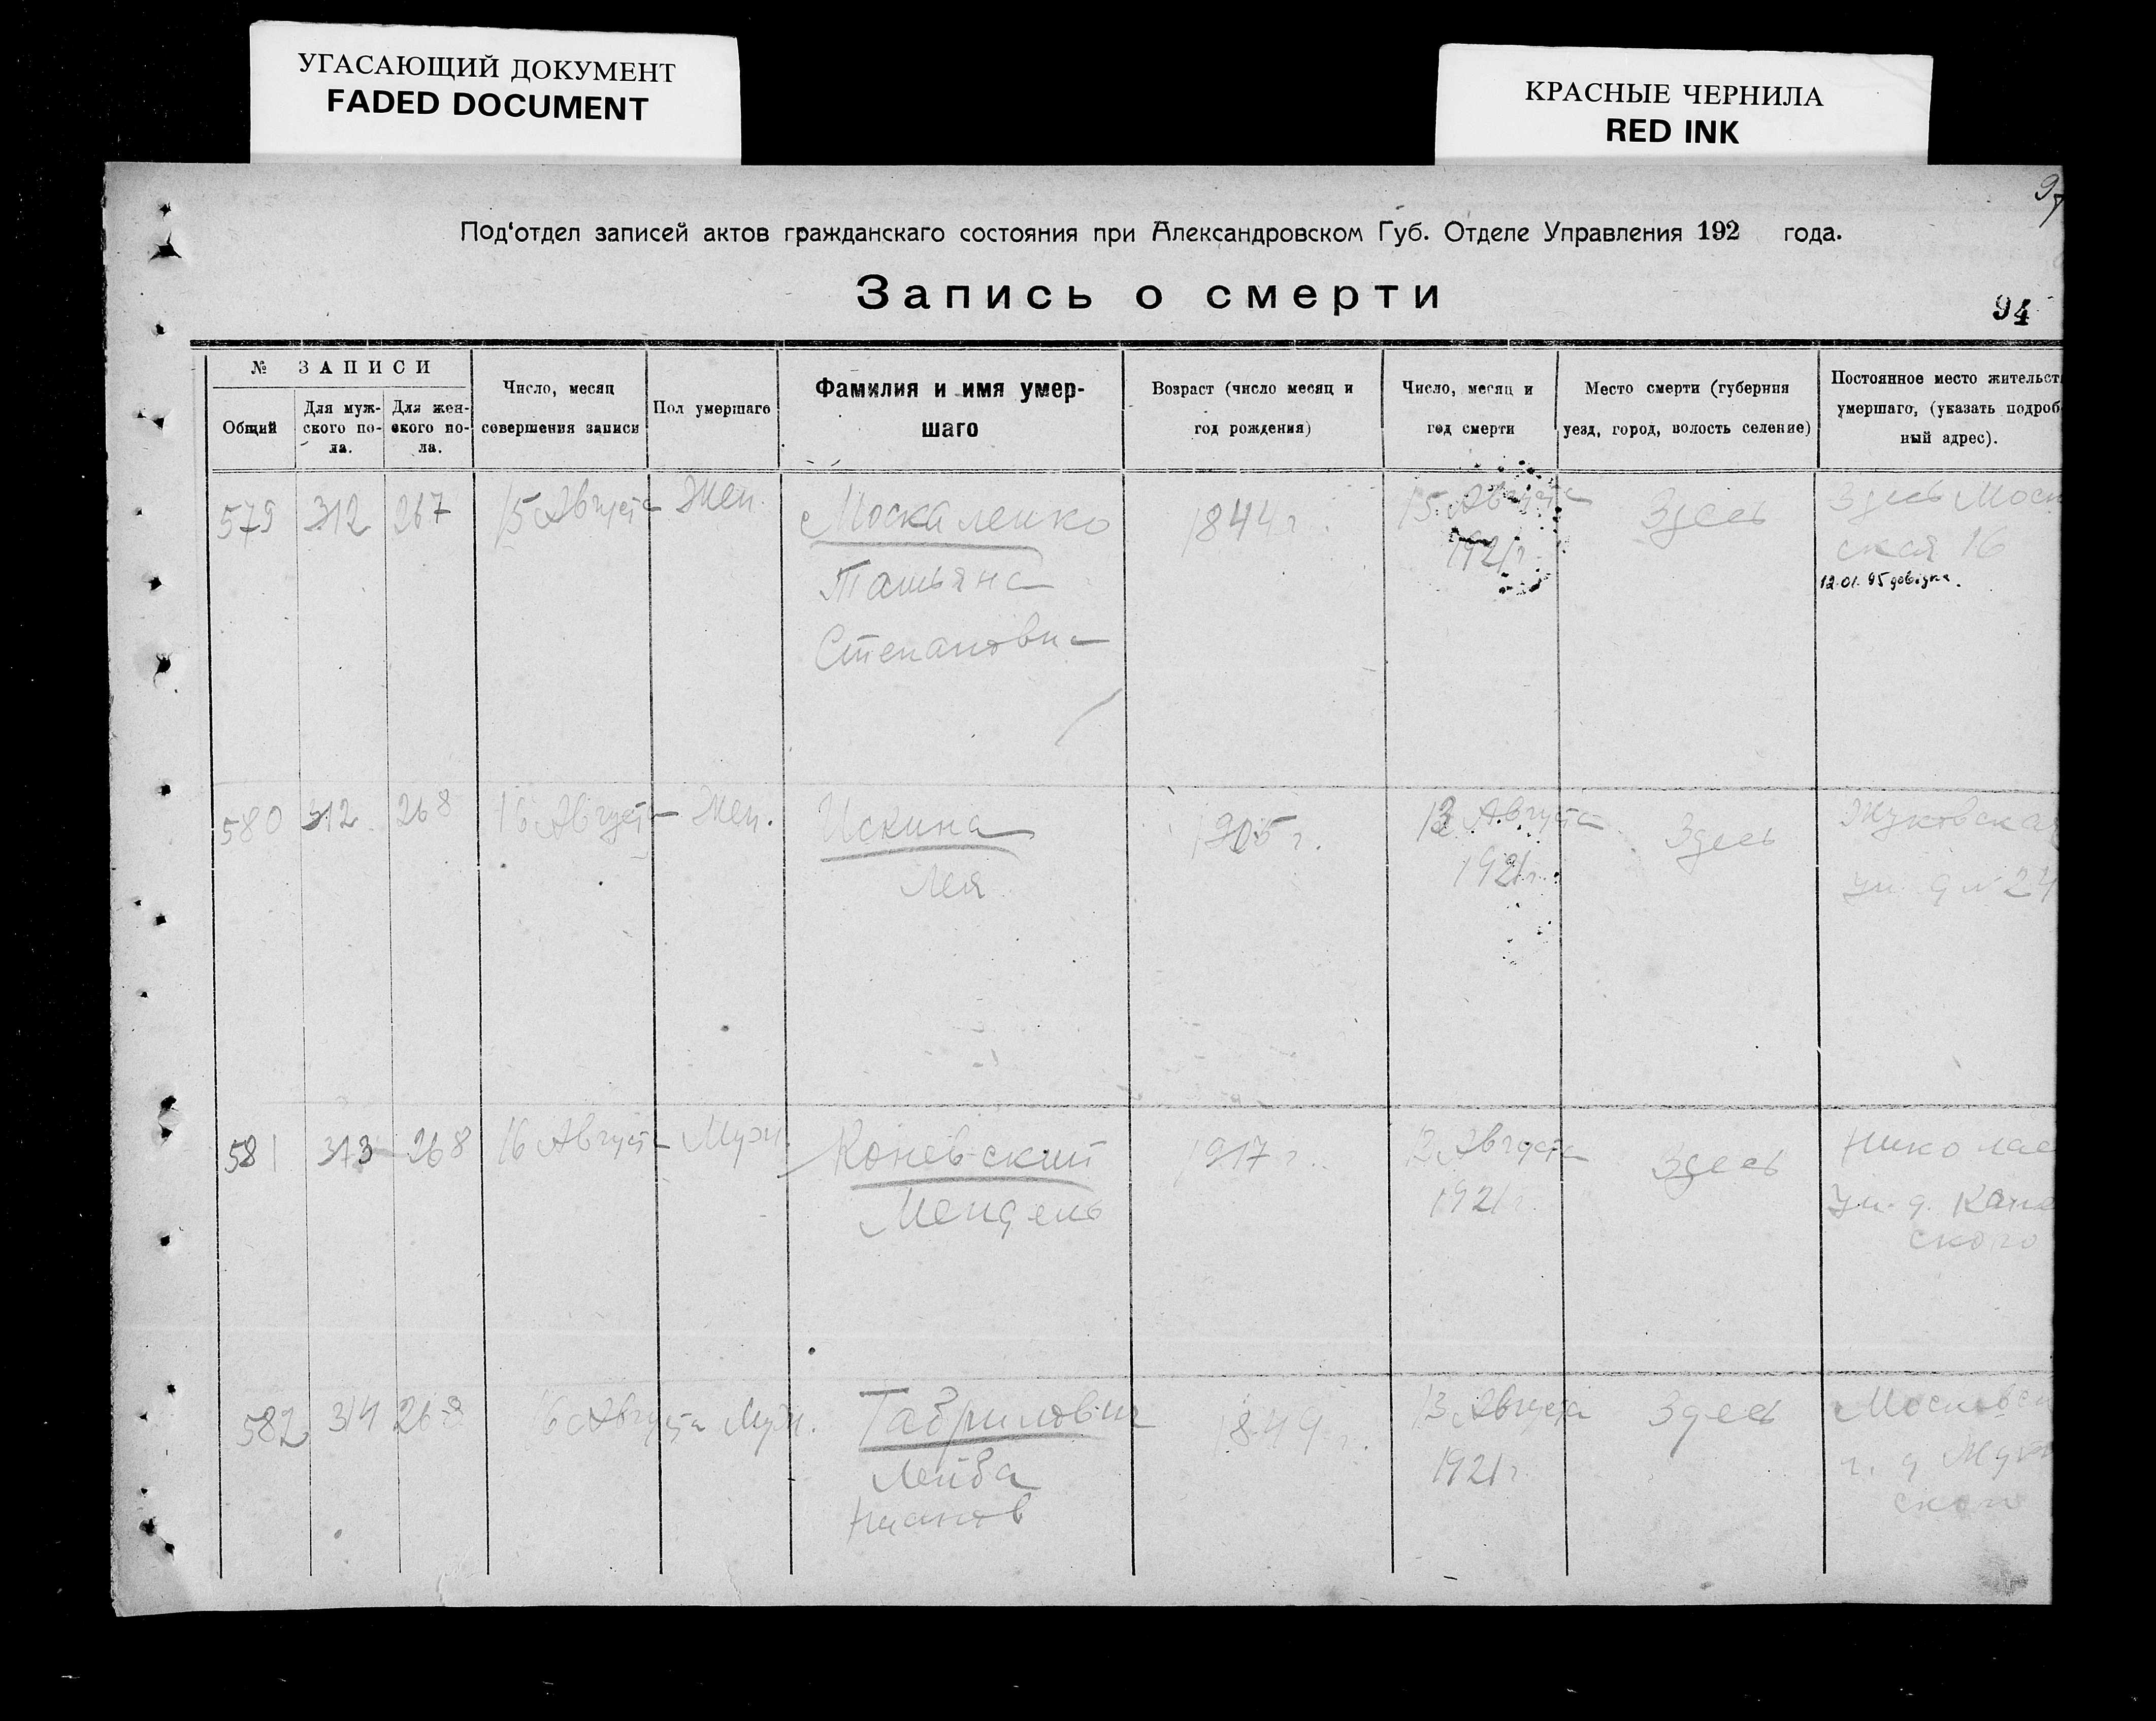 УГАСАЮЩИЙ ДОКУМЕНТ
FADED DOCUMENT
КРАСНЫЕ ЧЕРНИЛА
RED INK
97
Под‘отдел записей актов гражданскаго состояния при Александровском Губ. Отделе Управления 192 года.
Запись о смерти
94
№ ЗАПИСИ
Общий
Для муж-
ского по-
ла.
Для жен-
ского по-
ла.
Число, месяц
совершения записи
Пол умершаго
Фамилия и имя умер-
шаго
Возраст (число месяц и
год рождения)
Число, месяц и
год смерти
Место смерти (губерния
уезд, город, волость селение)
Постоянное место жительст
умершаго, (указать подроб-
ный адрес).
579 312 267 15 Августа Жен. Москаленко 1844 г. 15 Августа Здесь Здесь Моск
1921 г. ская 16
Татьяна 12.01.95 довідка.
Степановна
580 312 268 16 Августа Жен. Искина 1905 г. 13 Августа Здесь Жуковская
Лея 1921 г. ул. д № 24
581 313 268 16 Августа Муж. Коневский 1917 г. 12 Августа Здесь Николае
Мендель 1921 г. ул. д.
ского
582 314 268 16 Августа Муж. Габрилович 1849 г. 13 Августа Здесь Московск
Лейба 1921 г.